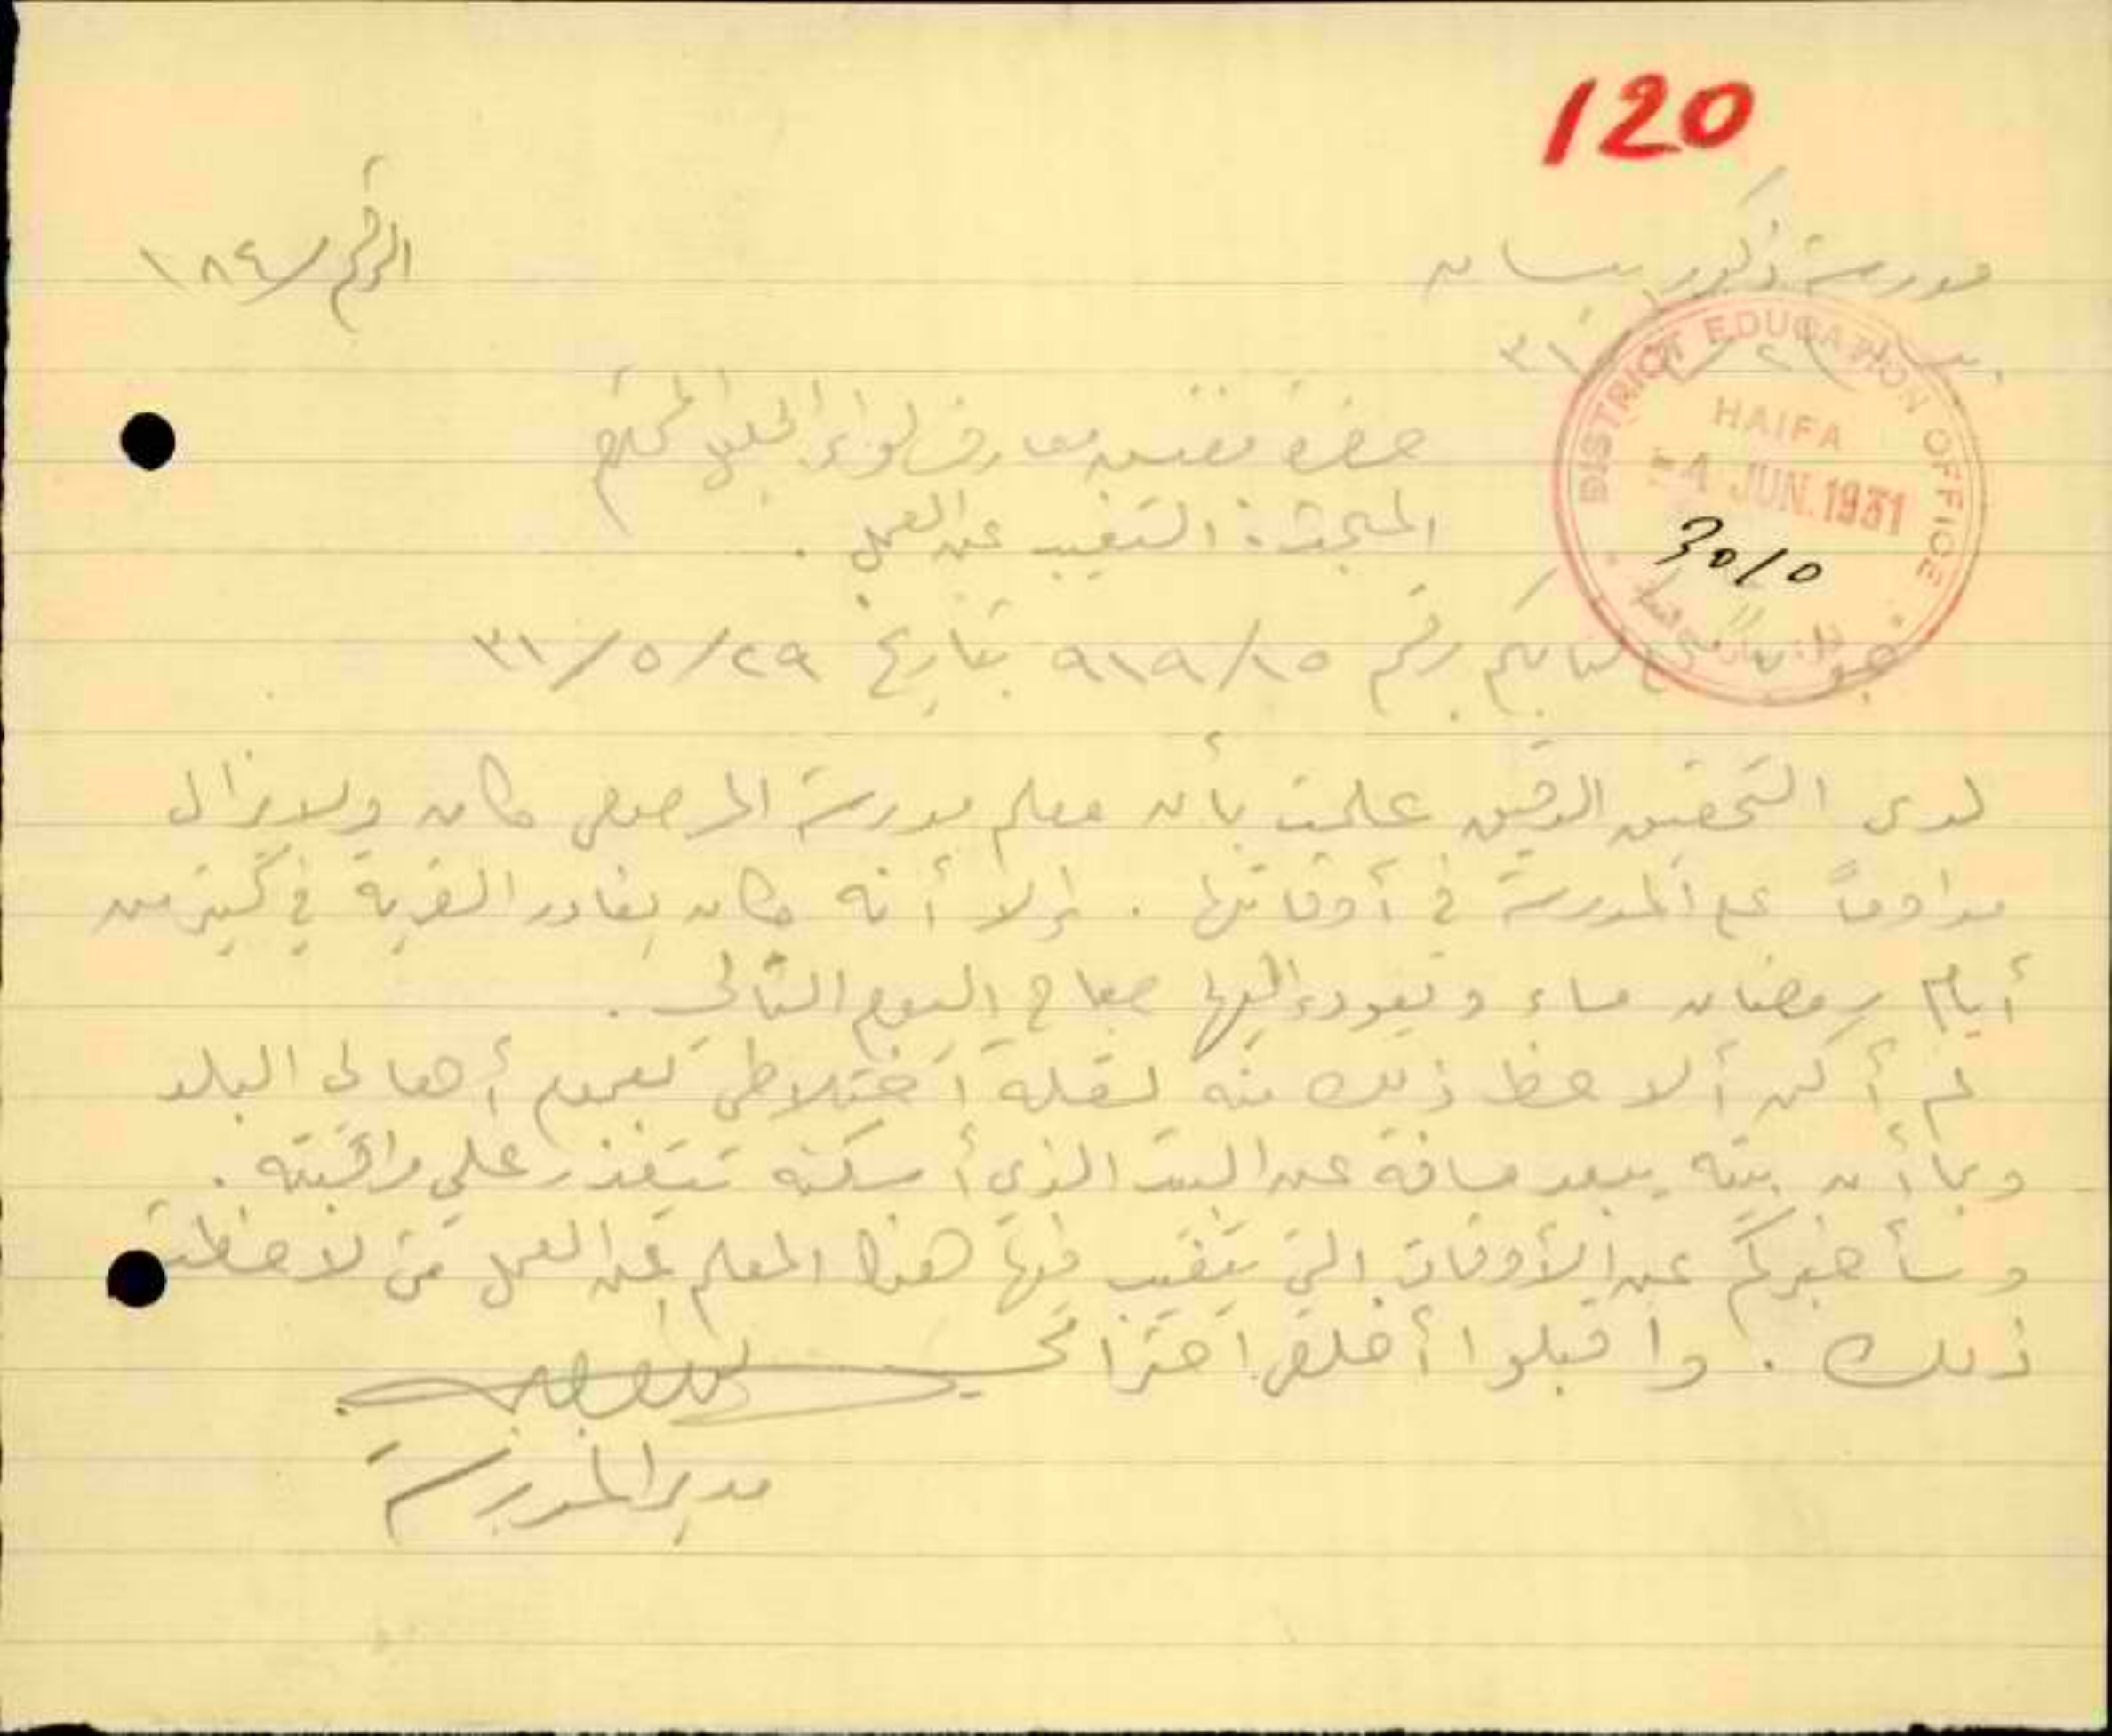 120
مدرسة ذكور بيسان
الرقم / ١٨٤
DISTRICT EDUCATION OFFICE
HAIFA
-4 JUN. 1931
3010
حضرة مفتش معارف لواء الجليل المحترم
المبحث: التغيب عن العمل.
كتابكم رقم ٩١٩/١٥ بتاريخ ٣١/٥/٢٩
لدى التحقيق الدقيق علمت بأن معلم مدرسة المرصص كان ولا يزال
مداوماً على المدرسة في أوقاتها. إلا أنه كان يغادر القرية في كثير من
أيام رمضان مساء ويعود إليها صباح اليوم التالي.
لم أكن ألاحظ ذلك منه لقلة اختلاطي بعموم أهالي البلد
وبما أن بيته يبعد مسافة عن البيت الذي أسكنه تتعذر علي مراقبته.
وسأخبركم عن الأوقات التي يتغيب فيها هذا المعلم عن العمل متى لاحظت
ذلك. واقبلوا أخلص احترامي
مدير المدرسة